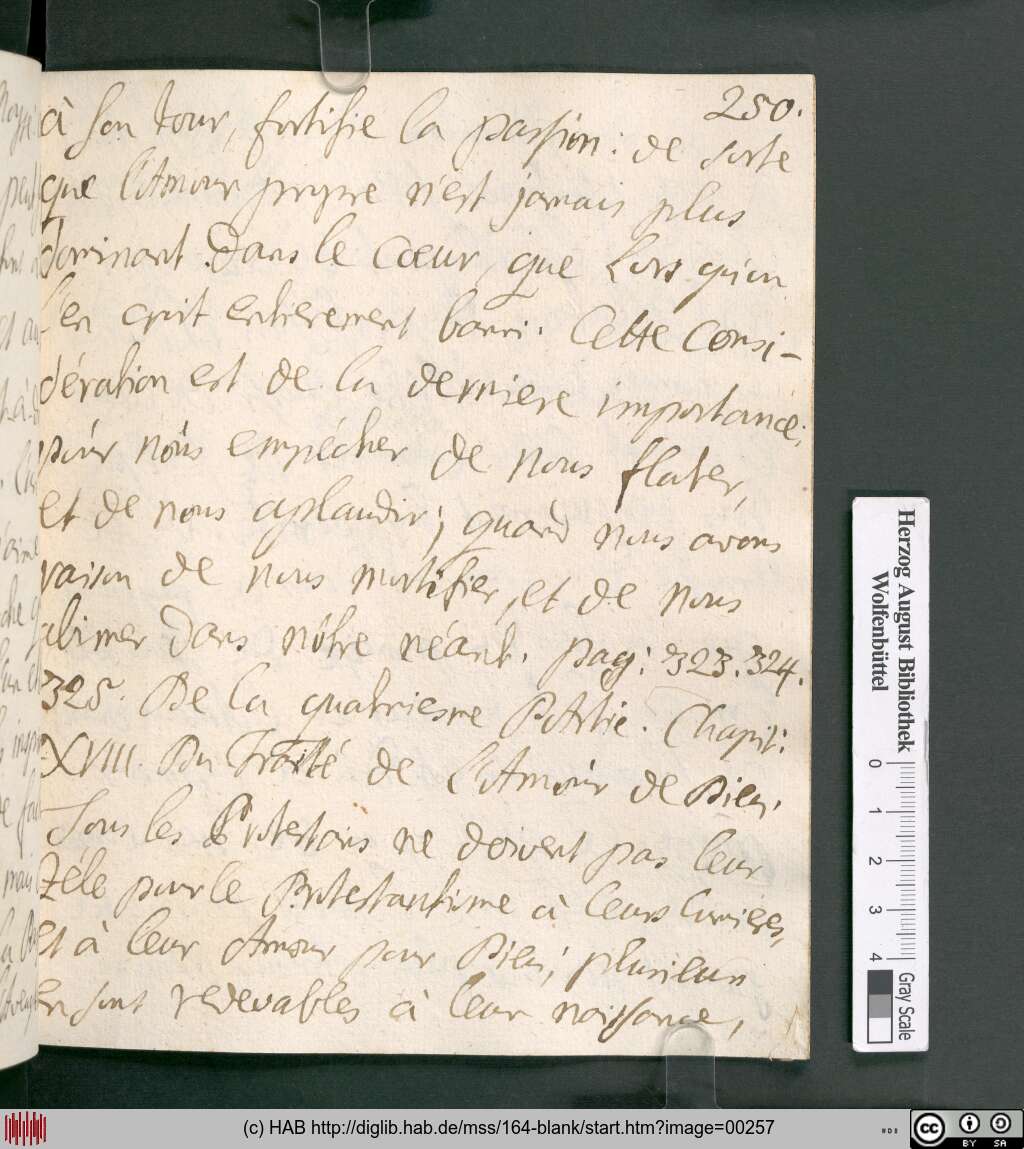 250.
à son tour, fortifie la passion: de sorte
que l'Amour propre n'est jamais plus
dominant dans le Cœur, que Lors qu'on
l'en croit entierement banni. Cette Consi-
dération est de la derniere importance;
pour nous empécher de nous flater,
et de nous aplaudir; quand nous avons
raison de nous mortifier, et de nous
abimer dans nôtre néant. pag: 323. 324.
325. De la quatriesme Partie. Chapit:
XVIII. Du Traité de l'Amour de Dieu.
Tous les Protestans ne doivent pas leur
Zéle pour le Protestantisme à leurs lumieres,
et à leur Amour pour Dieu; plusieurs
en sont redevables à leur naissance,
Herzog August Bibliothek
Wolfenbüttel
0 1 2 3 4
Gray Scale
(c) HAB http://diglib.hab.de/mss/164-blank/start.htm?image=00257
cc BY SA